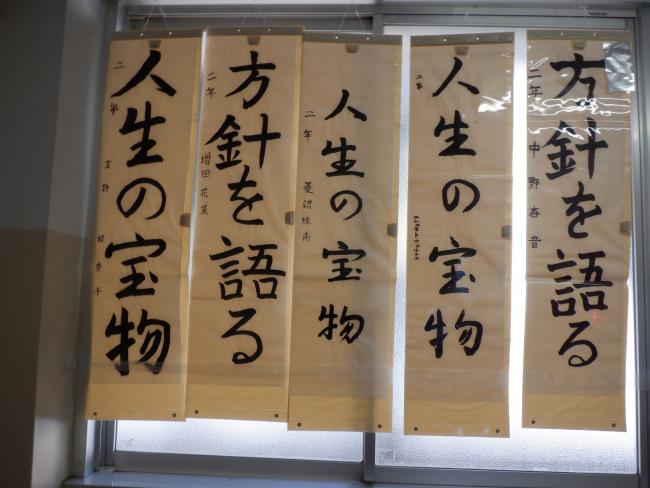 方針を語る
二年 中野春音
人生の宝物
二年
人生の宝物
二年 菱沼綾南
方針を語る
二年 増田花菜
人生の宝物
二年